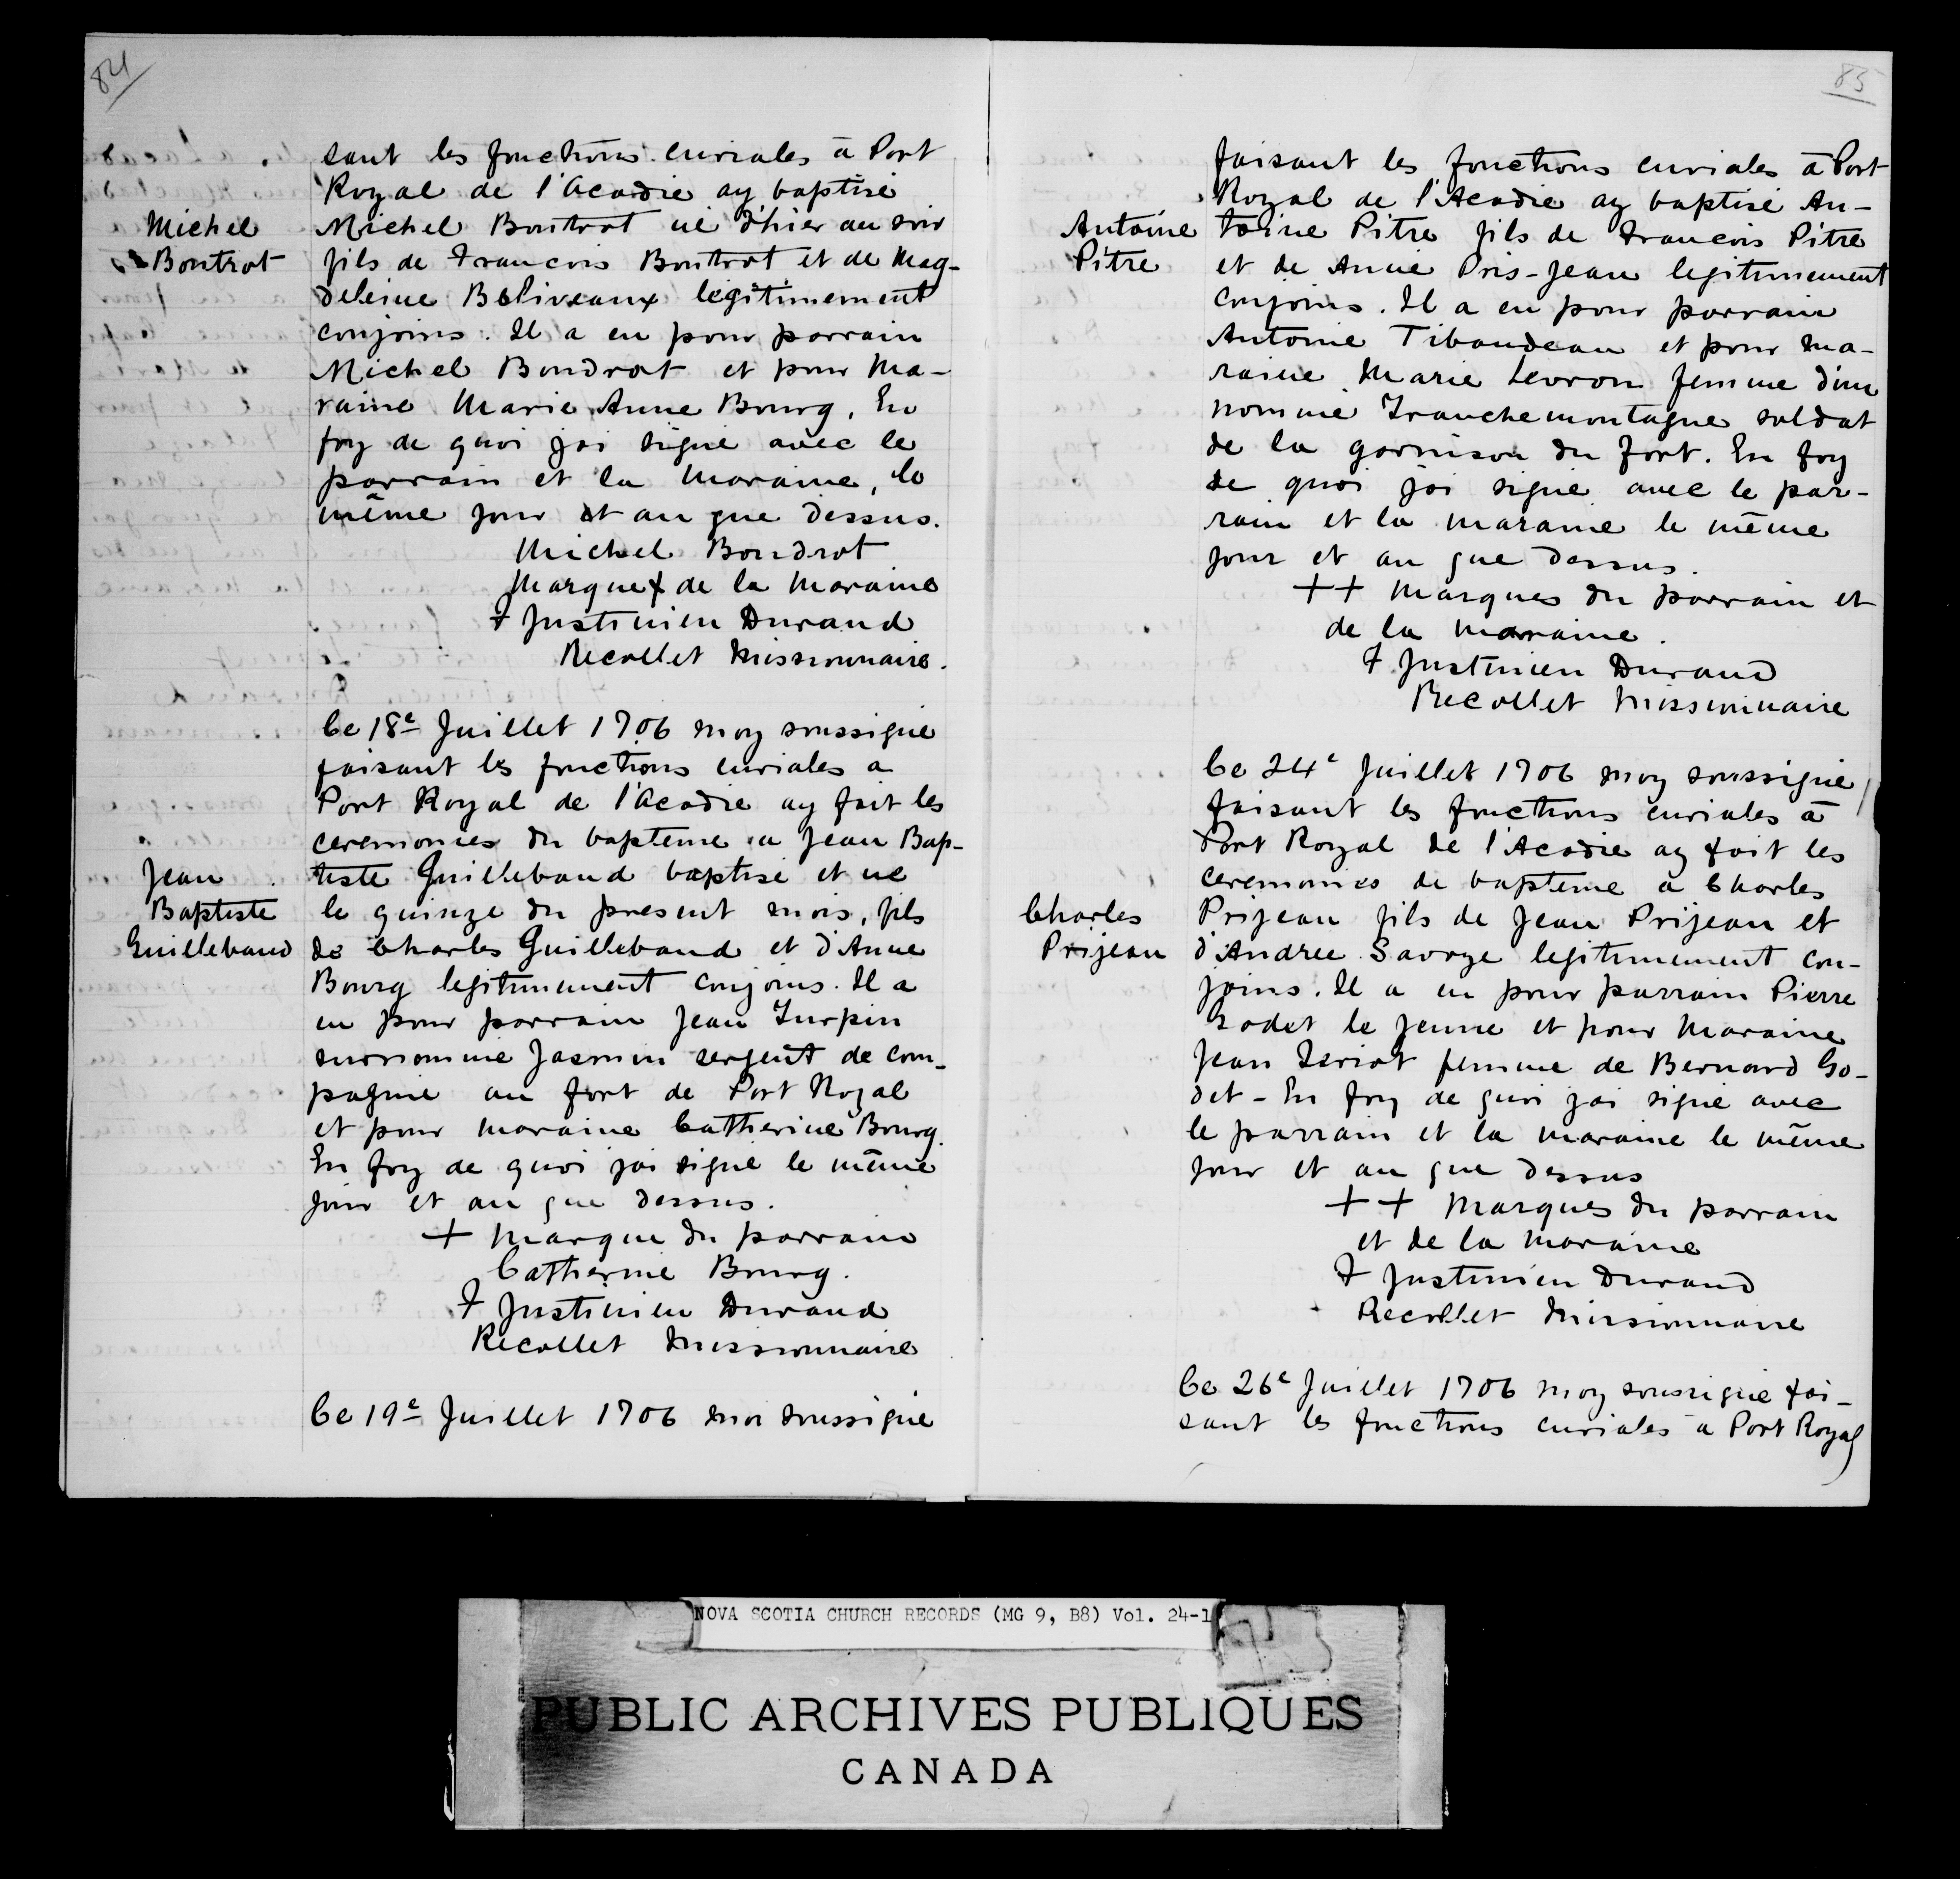 84
sant les fonctions curiales à Port
Royal de l'Acadie ay baptisé
Michel
Boutrot
Michel Boutrot né d'hier au soir
fils de Francois Boutrot et de Mag-
deleine Beliveaux legitimement
conjoins. Il a eu pour parrain
Michel Boudrot et pour Ma-
raine Marie Anne Bourg. En
foy de quoi jai signé avec le
parrain et la maraine, le
même jour et an que dessus.
Michel Boudrot
Marque + de la Maraine
F Justinien Durand
Recollet Missionnaire.
Ce 18e Juillet 1706 moy soussigné
faisant les fonctions curiales a
Port Royal de l'Acadie ay fait les
ceremonies du bapteme a Jean Bap-
Jean
Baptiste
Guillebaud
tiste Guillebaud baptisé et né
le quinze du present mois, fils
de Charles Guillebaud et d'Anne
Bourg legitimement conjoins. Il a
eu pour parrain Jean Turpin
surnommé Jasmin sergent de com-
pagnie au fort de Port Royal
et pour maraine Catherine Bourg.
En foy de quoi jai signé le même
jour et an que dessus.
+ Marque du parrain
Catherine Bourg.
F Justinien Durand
Recollet Missionnaire
Ce 19e Juillet 1706 moi soussigné
85
faisant les fonctions curiales à Port
Royal de l'Acadie ay baptisé An-
Antoine
Pitre
toine Pitre fils de Francois Pitre
et de Anne Pris-Jean legitimement
conjoins. Il a eu pour parrain
Antoine Tibaudeau et pour ma-
raine Marie Levron femme d'un
nommé Tranchemontagne soldat
de la garnison du fort. En foy
de quoi jai signé avec le par-
rain et la maraine le même
jour et an que dessus.
++ Marques du parrain et
de la maraine.
F Justinien Durand
Recollet Missionnaire
Ce 24e Juillet 1706 moy soussigné
faisant les fonctions curiales à
Port Royal de l'Acadie ay fait les
ceremonies de bapteme a Charles
Charles
Prijean
Prijean fils de Jean Prijean et
d'Andree Savoye legitimement con-
joins. Il a eu pour parrain Pierre
Godet le jeune et pour Maraine
Jean Teriot femme de Bernard Go-
det - En foy de quoi jai signé avec
le parrain et la maraine le même
jour et an que dessus
++ Marques du parrain
et de la Maraine
F Justinien Durand
Recollet Missionnaire
Ce 26e Juillet 1706 moy soussigné fai-
sant les fonctions curiales à Port Royal
NOVA SCOTIA CHURCH RECORDS (MG 9, B8) Vol. 24-1
PUBLIC ARCHIVES PUBLIQUES
CANADA